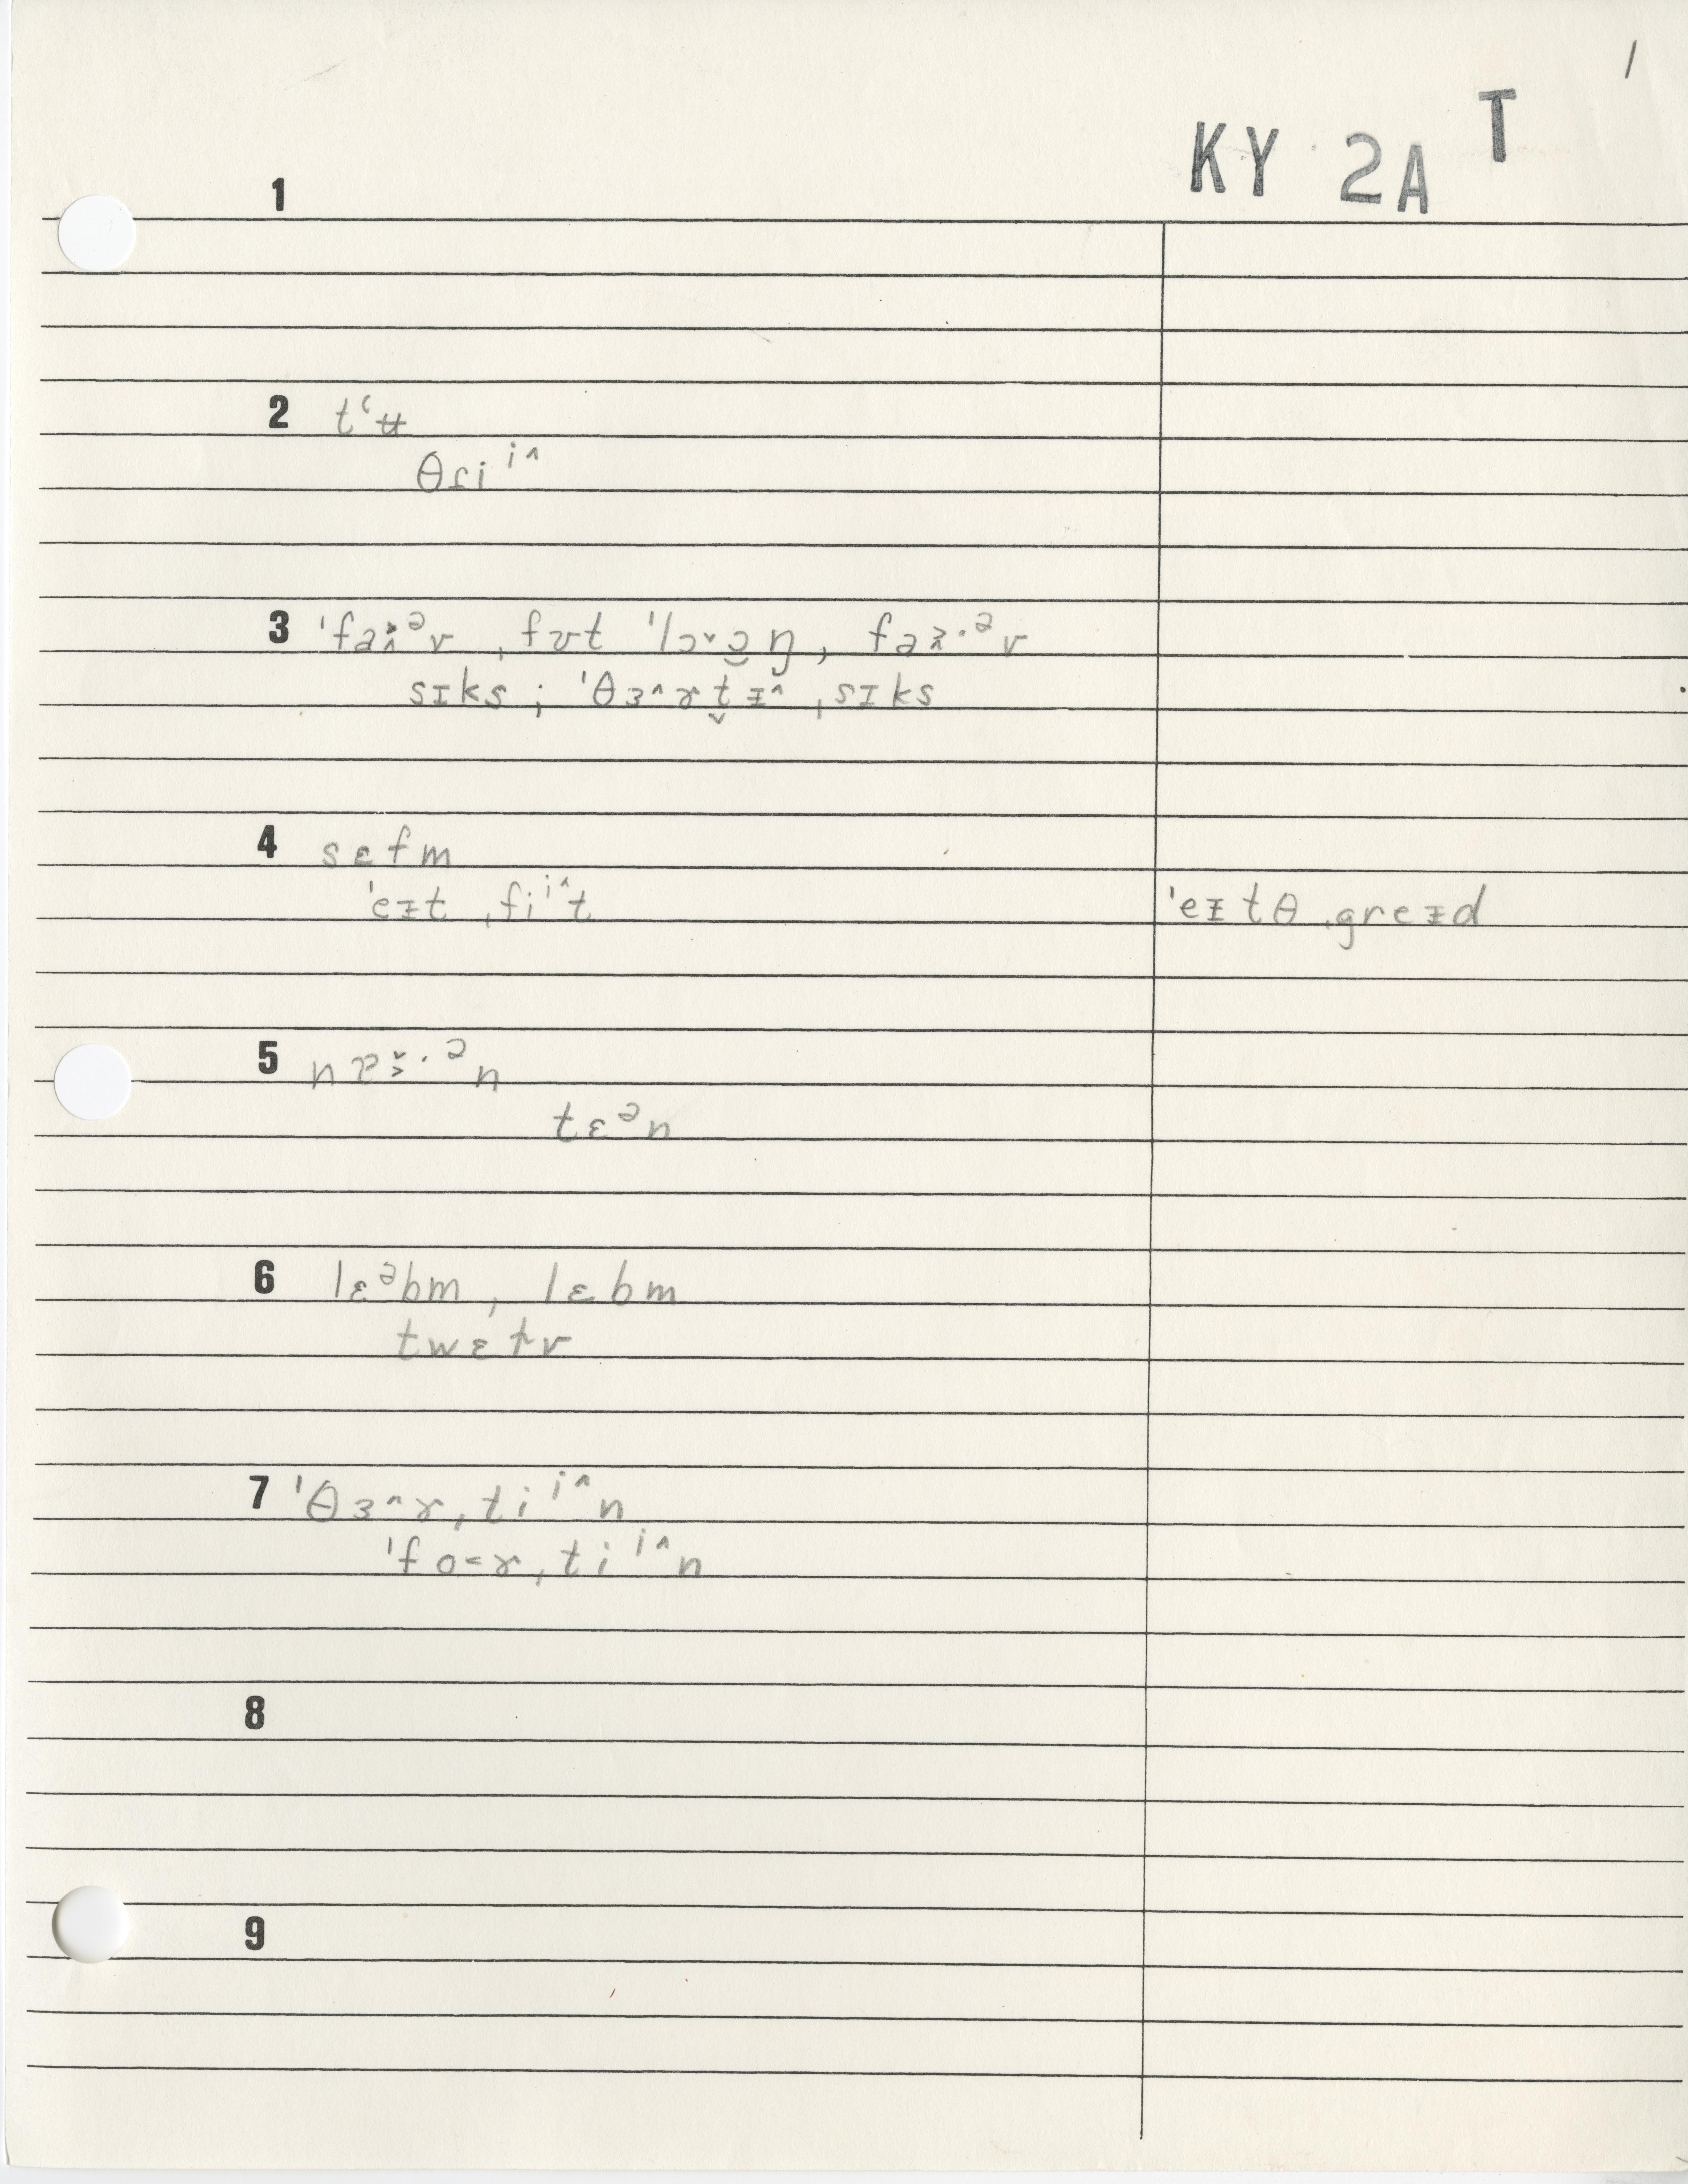 1
KY 2A T
1
2 tʻʉ
θɾi ⁱ^
3 ˈfa˃̬ᵊv ˌfʊt ˈlɔˇɔ̯ŋ, fa˃̬·ᵊv
sɪks ; ˈθɜ^ɤt̬ɪ̵^ ˌsɪks
4 sɛfm
ˈeɪ̵t ˌfiⁱ^t ˈeɪ̵tθ ˌgreɪ̵d
5 nɐ̬˃·ᵊn
tɛᵊn
6 lɛᵊbm, lɛbm
twɛɫv
7 ˈθɜ^ɤˌtiⁱ^n
ˈfo˂ɤˌtiⁱ^n
8
9